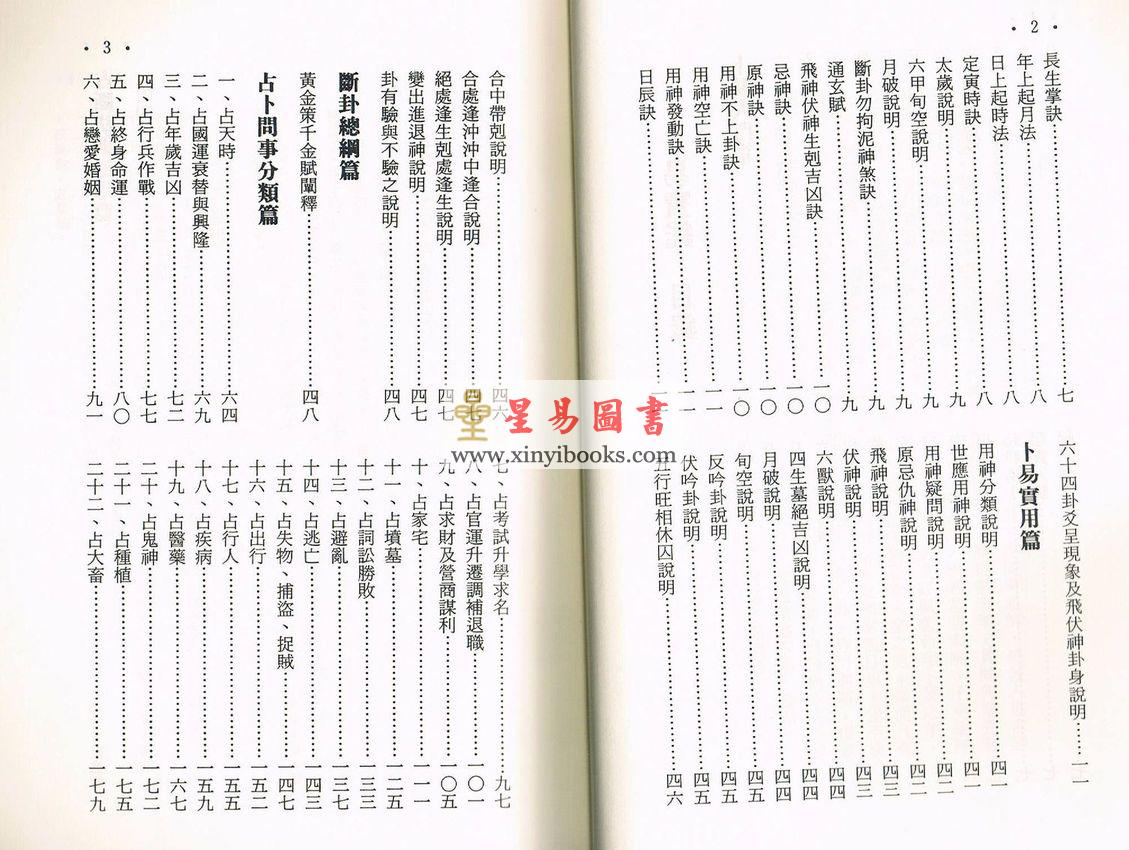 • 2 •
長生掌訣⋯⋯七
年上起月法⋯⋯八
日上起時法⋯⋯八
定寅時訣⋯⋯九
太歲說明⋯⋯九
六甲旬空說明⋯⋯九
月破說明⋯⋯九
斷卦勿拘泥神煞訣⋯⋯九
通玄賦⋯⋯九
飛神伏神生剋吉凶訣⋯⋯一〇
忌神訣⋯⋯一〇
原神訣⋯⋯一〇
用神不上卦訣⋯⋯一〇
用神空亡訣⋯⋯一一
用神發動訣⋯⋯一一
日辰訣⋯⋯
六十四卦爻呈現象及飛伏神卦身說明⋯⋯一一
卜易實用篇
用神分類說明⋯⋯四一
世應用神說明⋯⋯四一
用神疑問說明⋯⋯四二
原忌仇神說明⋯⋯四二
飛神說明⋯⋯四三
伏神說明⋯⋯四三
六獸說明⋯⋯四四
四生墓絕吉凶說明⋯⋯四四
月破說明⋯⋯四四
旬空說明⋯⋯四五
反吟卦說明⋯⋯四五
伏吟卦說明⋯⋯四五
五行旺相休囚說明⋯⋯四六
• 3 •
合中帶剋說明⋯⋯四六
合處逢沖沖中逢合說明⋯⋯四七
絕處逢生剋處逢生說明⋯⋯四七
變出進退神說明⋯⋯四七
卦有驗與不驗之說明⋯⋯四八
斷卦總綱篇
黃金策千金賦闡釋⋯⋯四八
占卜問事分類篇
一、占天時⋯⋯六四
二、占國運衰替與興隆⋯⋯六九
三、占年歲吉凶⋯⋯七二
四、占行兵作戰⋯⋯七七
五、占終身命運⋯⋯八〇
六、占戀愛婚姻⋯⋯九一
七、占考試升學求名⋯⋯九七
八、占官運升遷調補退職⋯⋯一〇一
九、占求財及營商謀利⋯⋯一〇五
十、占家宅⋯⋯一一一
十一、占墳墓⋯⋯一二五
十二、占詞訟勝敗⋯⋯一三三
十三、占避亂⋯⋯一三七
十四、占逃亡⋯⋯一四三
十五、占失物、捕盜、捉賊⋯⋯一四七
十六、占出行⋯⋯一五一
十七、占行人⋯⋯一五五
十八、占疾病⋯⋯一五九
十九、占醫藥⋯⋯一六七
二十、占鬼神⋯⋯一七二
二十一、占種植⋯⋯一七五
二十二、占大畜⋯⋯一七九
星易圖書
www.xinyibooks.com